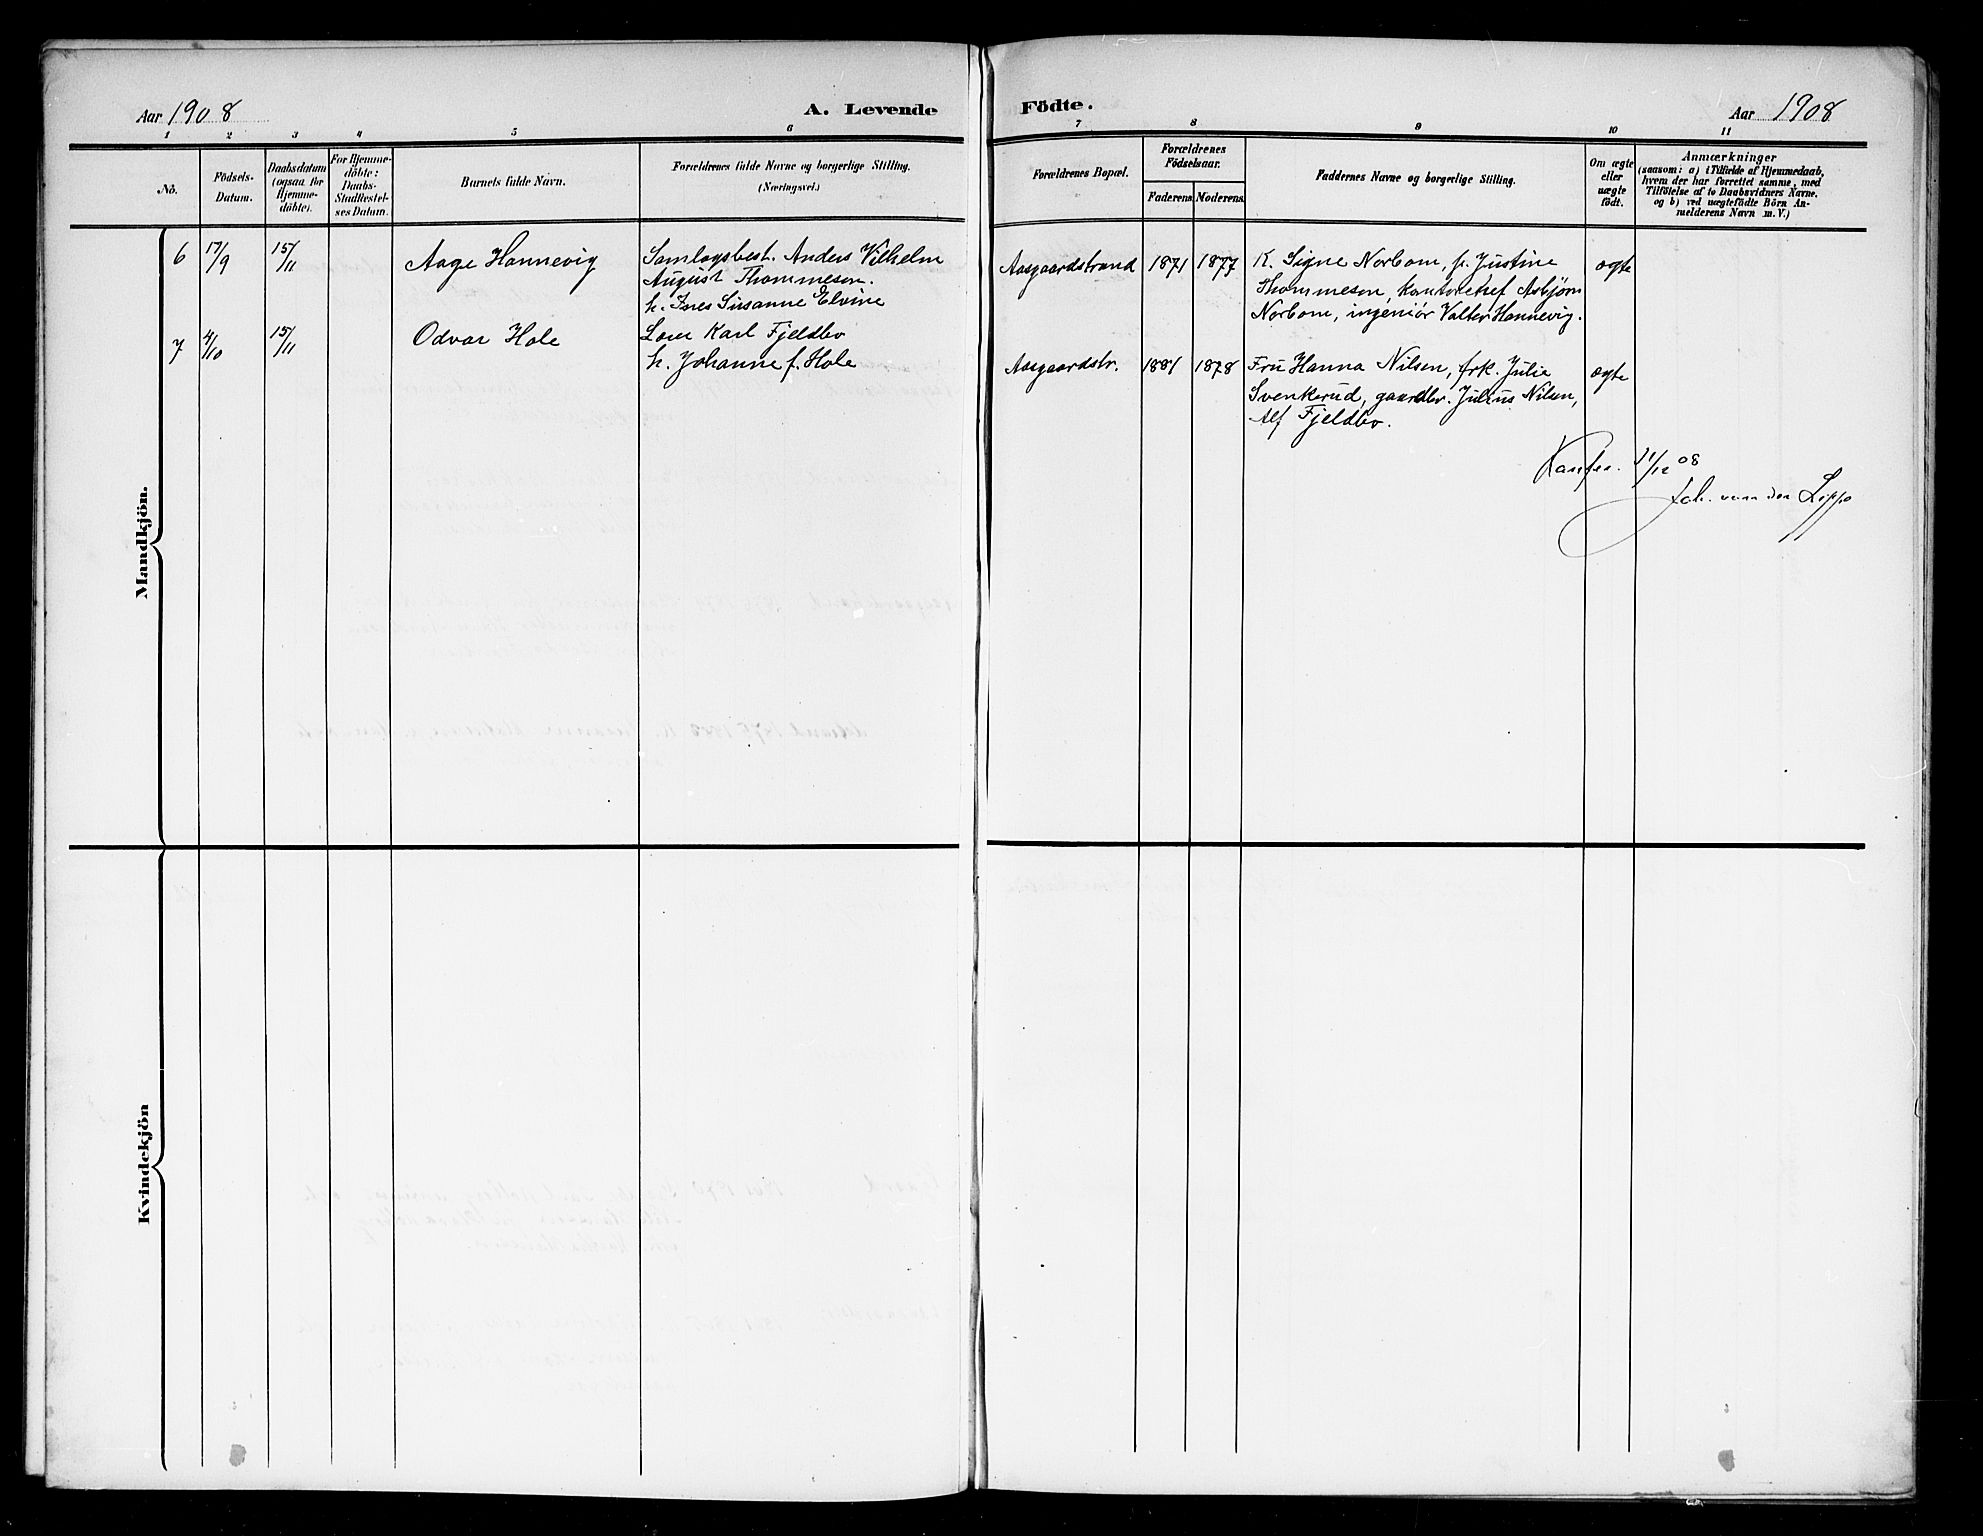 Aar 1908
A. Levende
Födte.
Aar 1908
1 2 3 4 5 6 7 8 9 10 11
No.
Födsels-
Datum.
Daabsdatum
(ogsaa for
Hjemme-
döbte).
For Hjemme-
döbte:
Daabs-
Stadfæstel-
ses Datum.
Barnets fulde Navn.
Forældrenes fulde Navne og borgerlige Stilling.
(Næringsvei.)
Forældrenes Bopæl.
Forældrenes
Födselsaar.
Faderens Moderens
Faddernes Navne og borgerlige Stilling.
Om ægte
eller
uægte
födt.
Anmærkninger
(saasom: a) i Tilfælde af Hjemmedaab,
hvem der har forrettet samme, med
Tilföielse af to Daabsvidners Navne.
og b) ved uægtefödte Börn An-
melderens Navn m. V.)
Mandkjön.
6 17/9 15/11 Aage Hannevig
Samlagsbest. Anders Vilhelm
August Thommesen.
h. Ines Susanne Elvine
Aasgaardstrand 1871 1877
K. Signe Norbom, f. Justine
Thommesen, kontorchef Asbjørn
Norbom, ingeniør Valter Hannevig.
ægte
7 4/10 15/11 Odvar Hole
Karl Fjeldbo
h. Johanne f. Hole
Aasgaardstr. 1881 1878
Fru Hanna Nilsen, frk. Julie
Svenkerud, gaardbr. Julius Nilsen,
Alf Fjeldbo.
ægte
11/12 08
Joh. van der Lippe
Kvindekjön